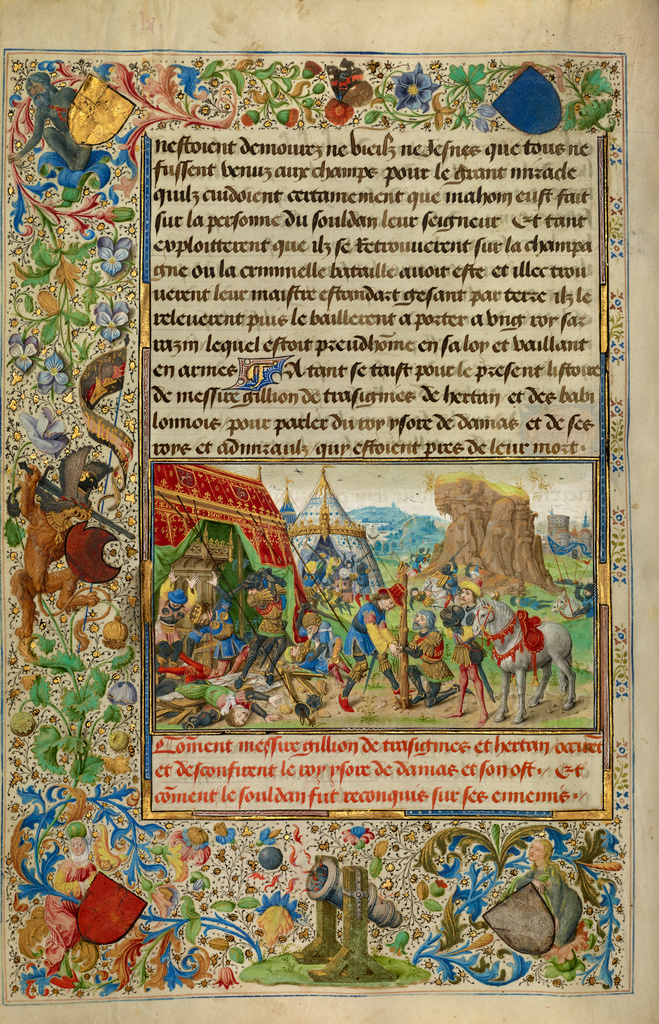 nestoient demourez ne vieilz ne Jesnes que tous ne
fussent venuz aux champs pour le grant miracle
quilz cuidoient certainement que mahom eust fait
sur la personne du souldan leur seigneur Et tant
exploitterent que ilz se Retrouverent sur la champa
gne ou la criminelle bataille avoit este et illec trou
verent leur maistre estandart gesant par terre ilz le
releverent puis le baillerent a porter a ung roy sar
razin lequel estoit preudhōme en sa loy et vaillant
en armes A tant se taist pour le present listoire
de messire gillion de trasignies de hertan et des babi
lonnois pour parler du roy ysore de damas et de ses
roys et admiraulz qui estoient pres de leur mort.
Cōment messire gillion de trasignies et hertan
et desconfirent le roy ysore de damas et son ost. Et
cōment le souldan fut reconquis sur ses ennemis.